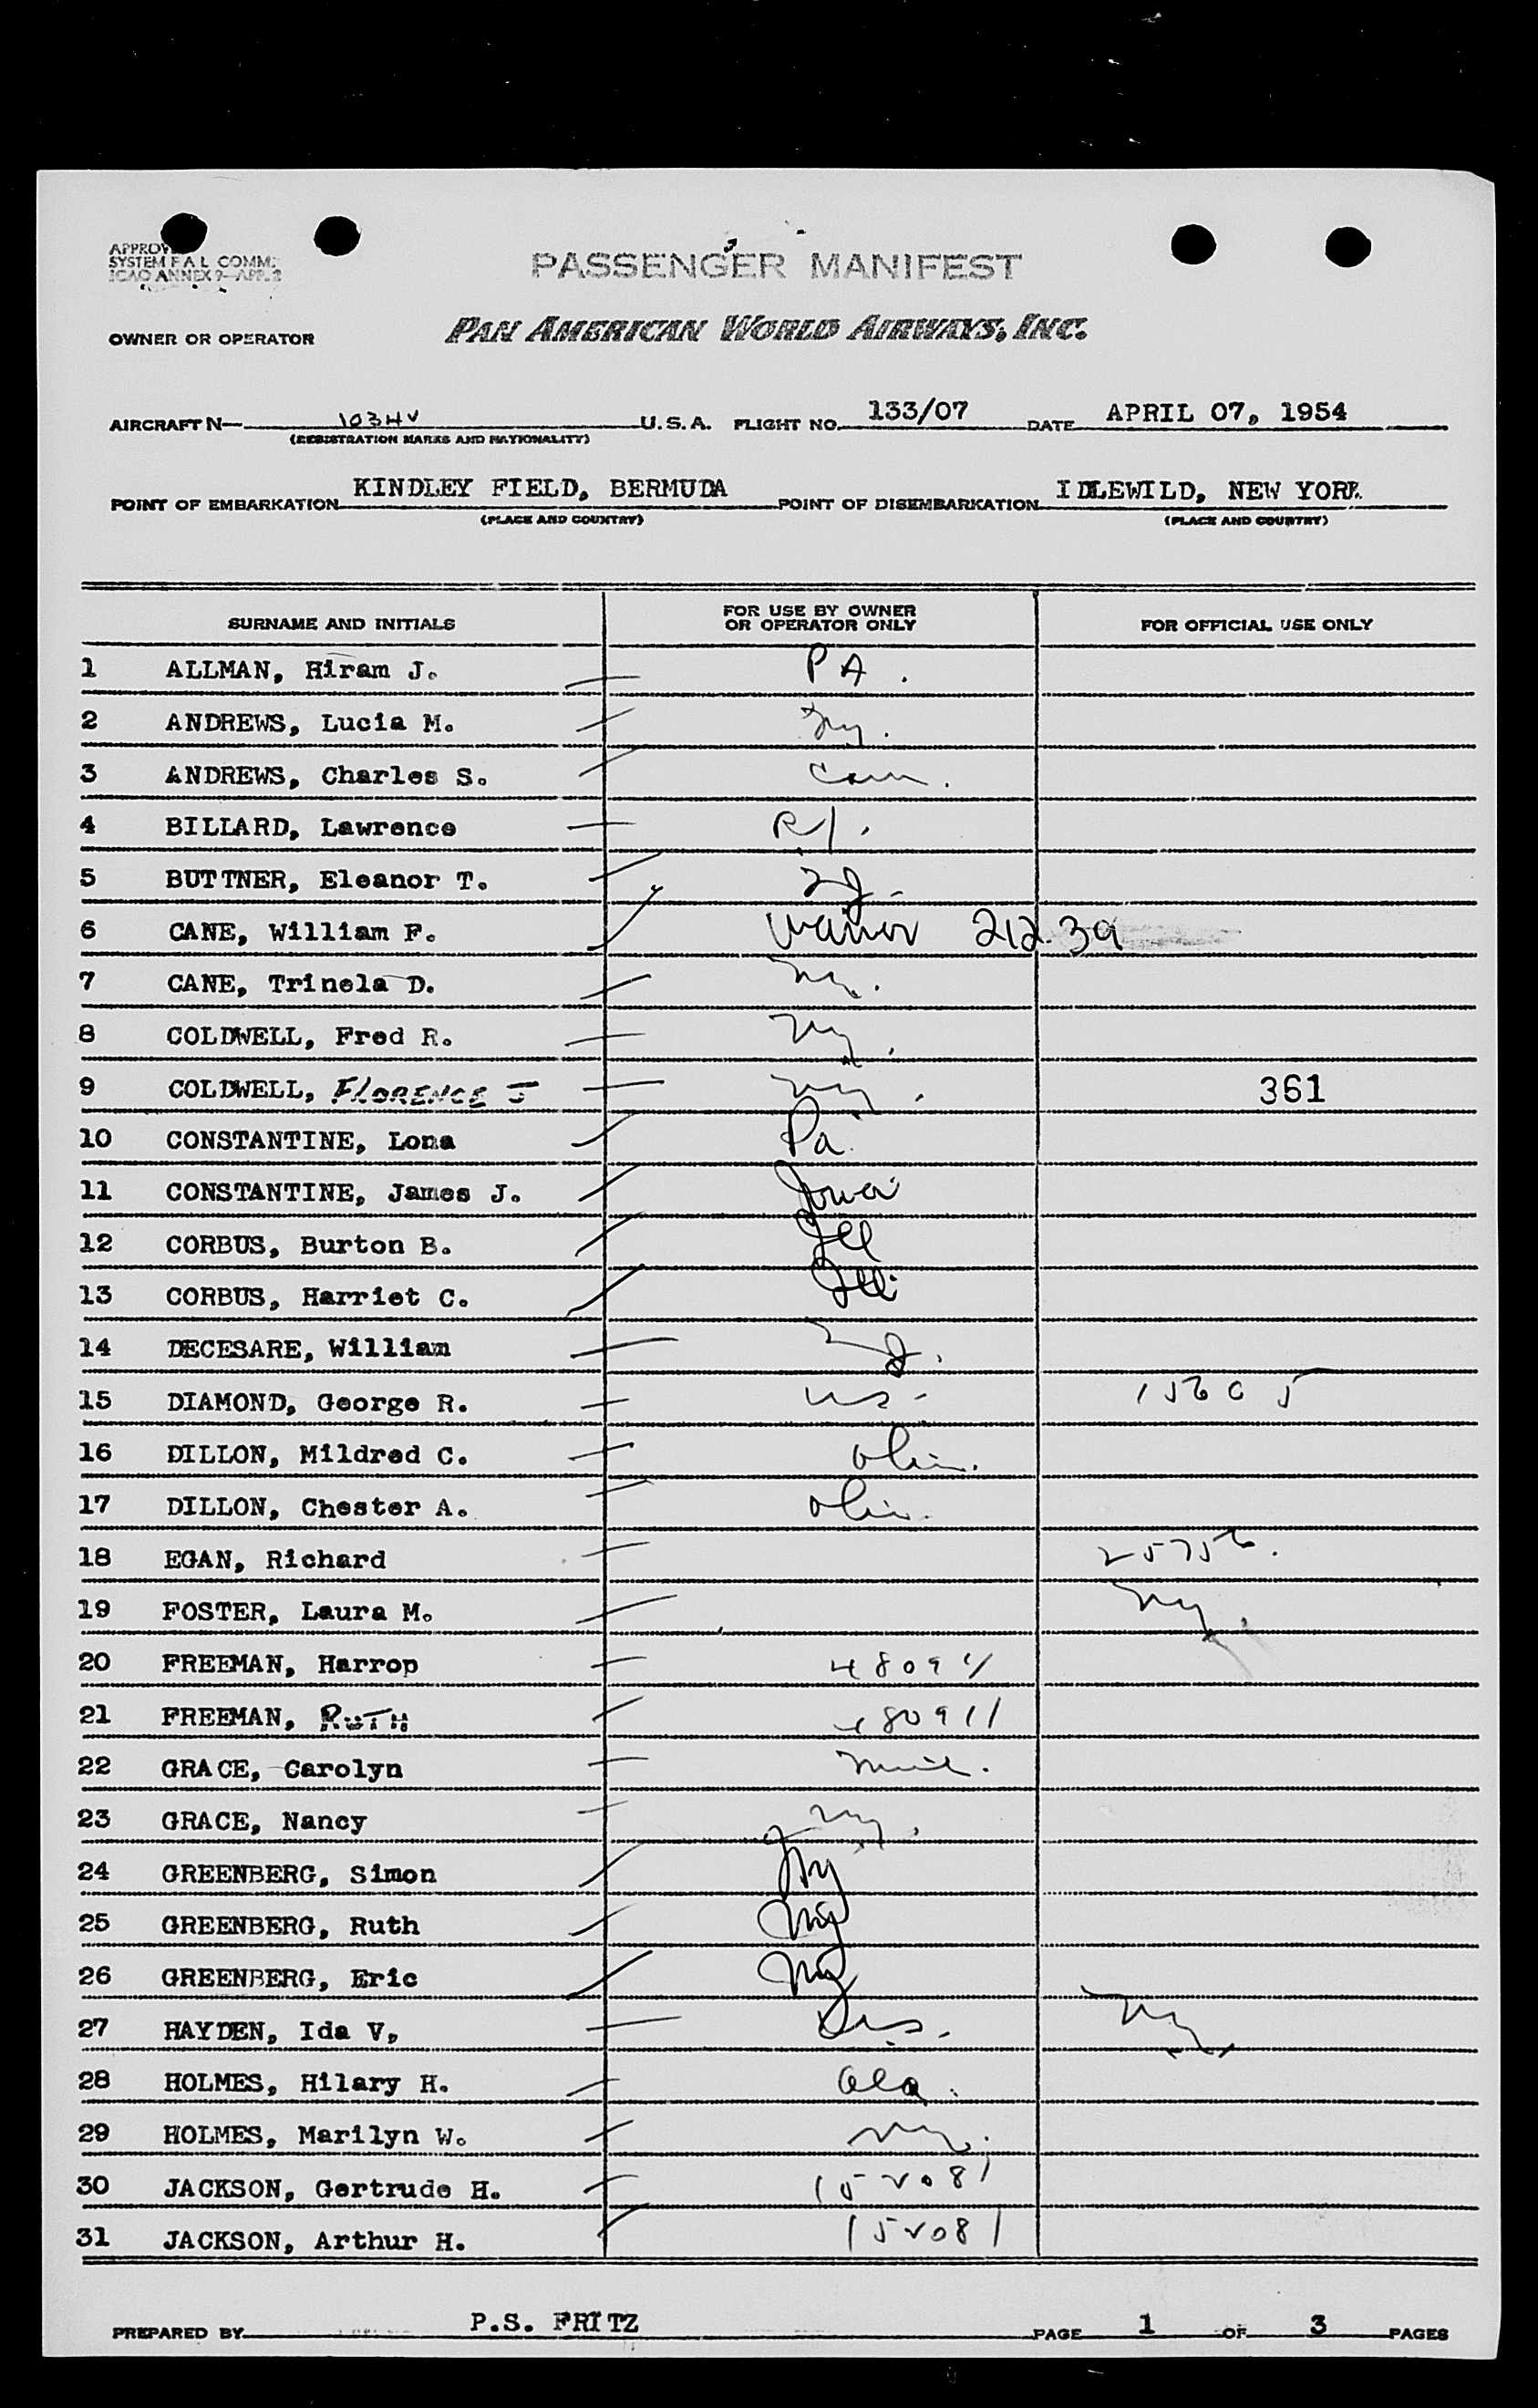 APPROVED
SYSTEM F A L COMM.
ICAO ANNEX 9-APP. 2
PASSENGER MANIFEST
OWNER OR OPERATOR PAN AMERICAN WORLD AIRWAYS, INC.
AIRCRAFT N— 1034V U.S.A. FLIGHT NO. 133/07 DATE APRIL 07, 1954
(REGISTRATION MARKS AND NATIONALITY)
POINT OF EMBARKATION KINDLEY FIELD, BERMUDA POINT OF DISEMBARKATION IDLEWILD, NEW YORK
(PLACE AND COUNTRY) (PLACE AND COUNTRY)
SURNAME AND INITIALS FOR USE BY OWNER OR OPERATOR ONLY FOR OFFICIAL USE ONLY
1 ALLMAN, Hiram J. PA.
2 ANDREWS, Lucia M. Ny.
3 ANDREWS, Charles S.
4 BILLARD, Lawrence RI.
5 BUTTNER, Eleanor T. NJ.
6 CANE, William F. Waiver 212.39
7 CANE, Trinela D. Ny.
8 COLDWELL, Fred R. Ny.
9 COLDWELL, FLORENCE J Ny. 361
10 CONSTANTINE, Lona Pa.
11 CONSTANTINE, James J. Iowa
12 CORBUS, Burton B. Ill
13 CORBUS, Harriet C. Ill
14 DECESARE, William NJ.
15 DIAMOND, George R.
16 DILLON, Mildred C. Ohio.
17 DILLON, Chester A. Ohio.
18 EGAN, Richard
19 FOSTER, Laura M. Ny.
20 FREEMAN, Harrop
21 FREEMAN, RUTH 480911
22 GRACE, Carolyn
23 GRACE, Nancy Ny.
24 GREENBERG, Simon Ny
25 GREENBERG, Ruth Ny
26 GREENBERG, Eric Ny
27 HAYDEN, Ida V. Ny.
28 HOLMES, Hilary H. Ala.
29 HOLMES, Marilyn W. Ny.
30 JACKSON, Gertrude H. 152081
31 JACKSON, Arthur H. 152081
PREPARED BY P.S. FRITZ PAGE 1 OF 3 PAGES